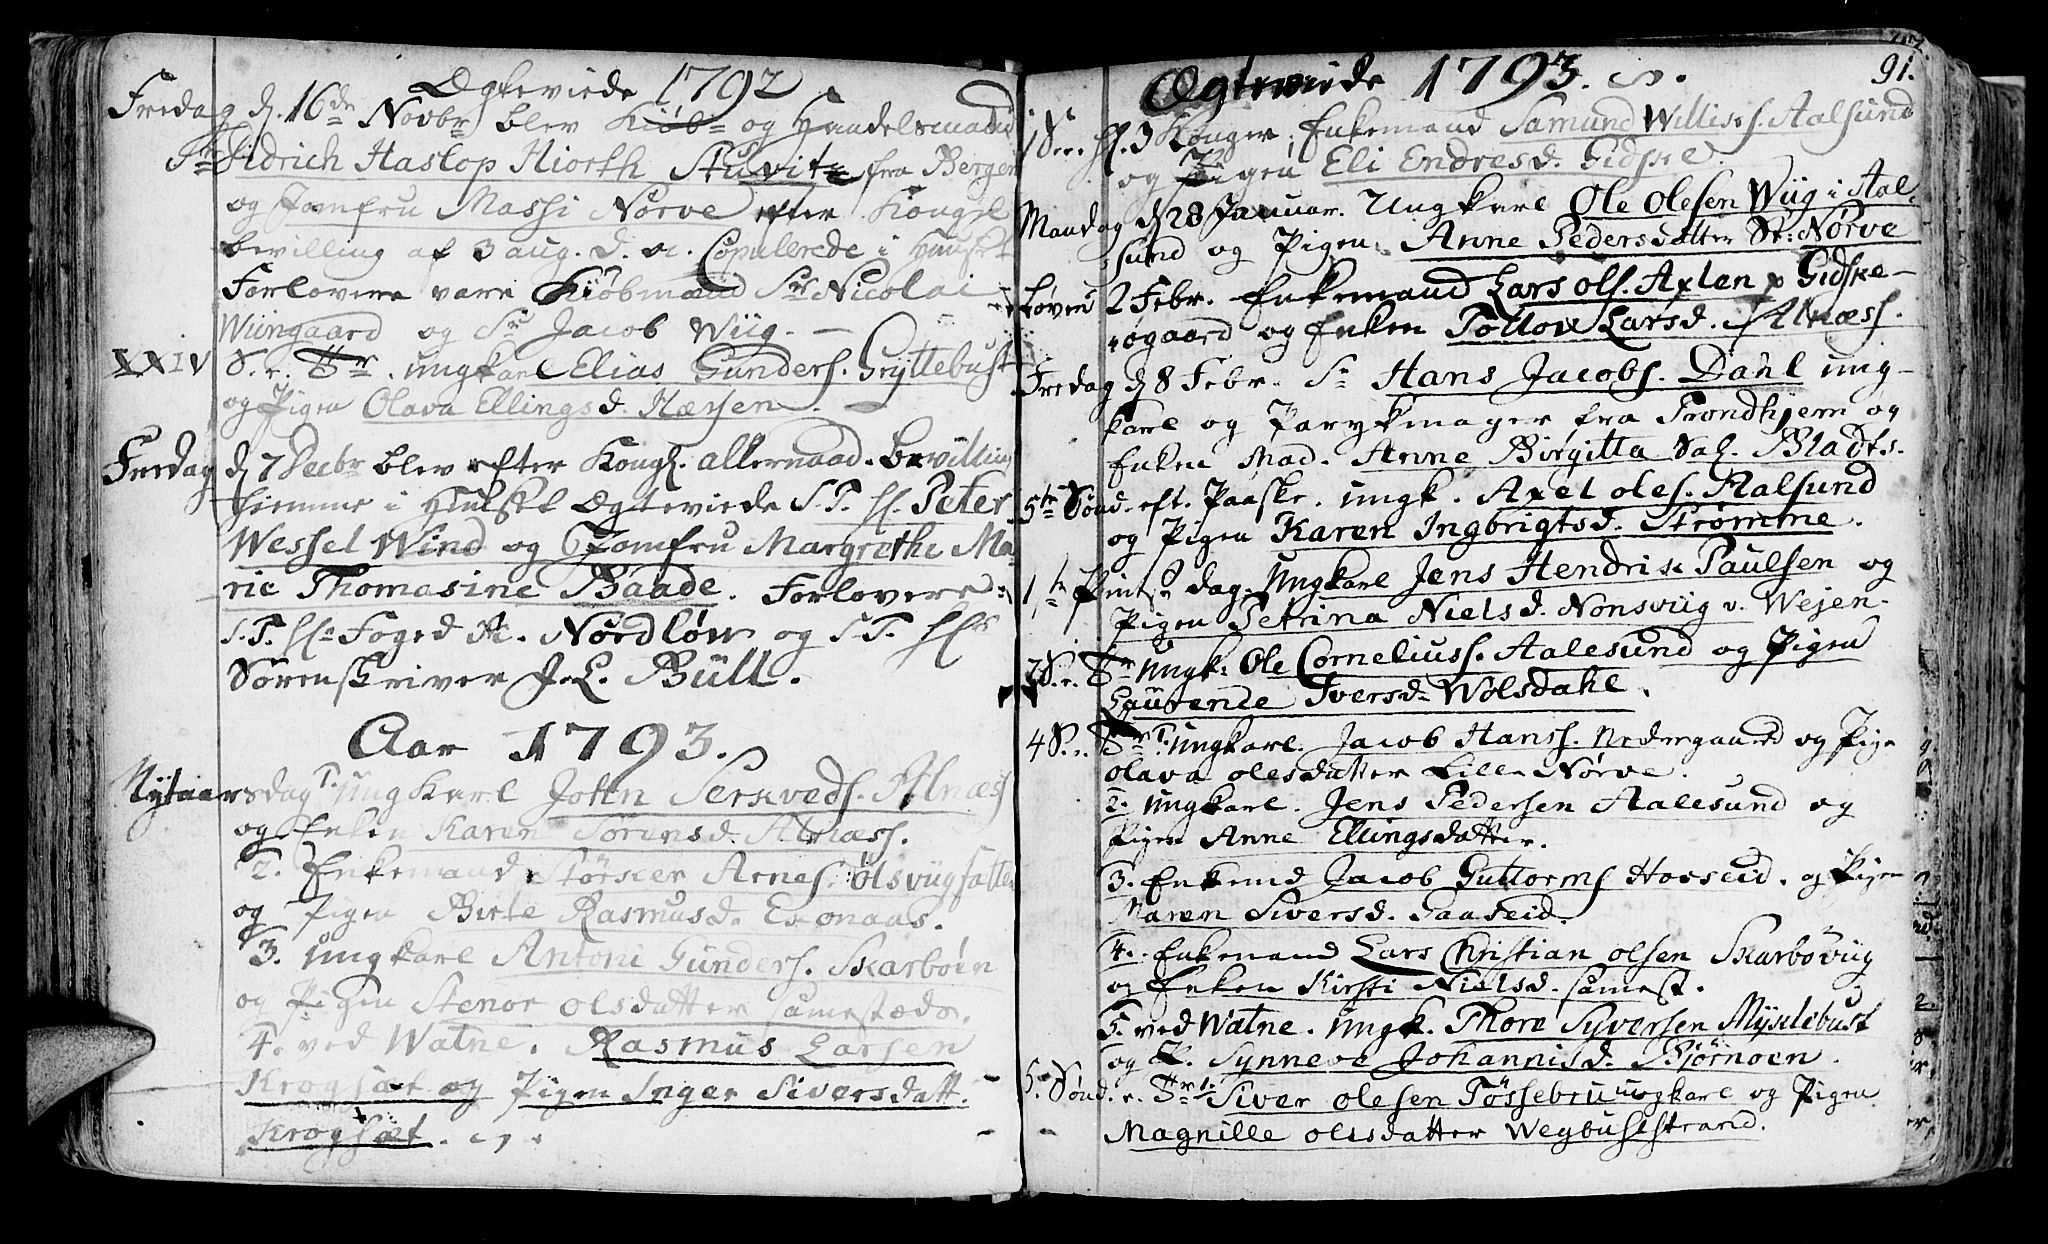 Ægteviede 1792
Fredag d. 16de Novbr blev Kiøb- og Handelsmand
Sr Didrich Haslop Hiorth Stuvitz fra Bergen
og Jomfru Massi Nørve efter Kongel.
bevilling af 3 aug. d. A. Copulerede i Huuset
Forlovere vare Kiöbmænd Sr Nicolai
Wiingaard og Sr Jacob Wiig. —
XXIV S. e. Tr. ungkarl Elias Gunders. Gryttebust
og Pigen Olava Ellingsd. Hæssen. —
Fredag d 7 Decbr blev efter Kongl. allernaad. bevilling
hiemme i Huuset Ægteviede S.T. Hr. Peter
Wessel Wind og Jomfru Margrethe Ma
rie Thomasine Baade. Forlovere
S.T. Hr Foged N. Nordlöw og S.T. Hr
Sørenskriver J. L. Büll.
Aar 1793.
Nytaarsdag 1. ungkarl John Serkveds. Alnæss
og Enken Karen Sörensd. Alnæss.
2. Enkemand Störker Arnes. Ölsviigsatter
og Pigen Birte Rasmusd. Exonaas.
3. ungkarl Antoni Gunders. Skarböen
og Pigen Stenor olsdatter samestæds.
4. ved Watne. Rasmus Larsen
Krogsæt og Pigen Inger Siversdatt.
Krogsæt.
Ægteviede 1793. 91.
1 S. e. H. 3 Konger, Enkemand Samund Willies. Aalsund
og Pigen Eli Endresd. Gidske.
Mandag d 28 Januar. Ungkarl Ole Olesen Wiig i Aal-
sund og Pigen Anne Pedersdatter St: Nørve
Løver 2 Febr. Enkemand Lars ols. Axlen p Gidske-
øgaard og Enken Pollow Larsd. Alnæss.
Fredag d 8 Febr. Sr Hans Jacobs. Dahl ung-
karl og Parykmager fra Trondhjem og
Enken Mad. Anne Birgitta Sal. Bladts.
5te Sønd. eft. Paaske. ungk. Axel oles. Aalsund
og Pigen Karen Ingbrigtsd. Strømme.
1te Pintsedag. Ungkarl Jens Hendrik Paulsen og
Pigen Petrina Nielsd. Nonsviig v. Wejen.
2 S. e. Tr Ungk: Ole Corneliuss. Aalesund og Pigen
Laurence Iversd. Wolsdahl.
4 S. e. Tr 1. Ungkarl. Jacob Hanss. Nedregaard og Pige
olava olesdatter Lille Nørve.
2. Ungkarl. Jens Pedersen Aalesund og
Pigen Anne Ellingsdatter.
3. Enkemd Jacob Guttorms Hosseid. og Pigen
Maren Siversd. Saaseid.
4. Enkemand Lars Christian olsen Skarbövig
og Enken Kirsti Nielsd. samest.
5. ved Watne. Ungk. Thore Syversen Myslebust
og P. Synneve Johannisd. Björnoen.
5. Sönd. e. Tr 1. Siver olesen Tössebru ungkarl og Pigen
Magnille olesdatter Wegbuststrand.